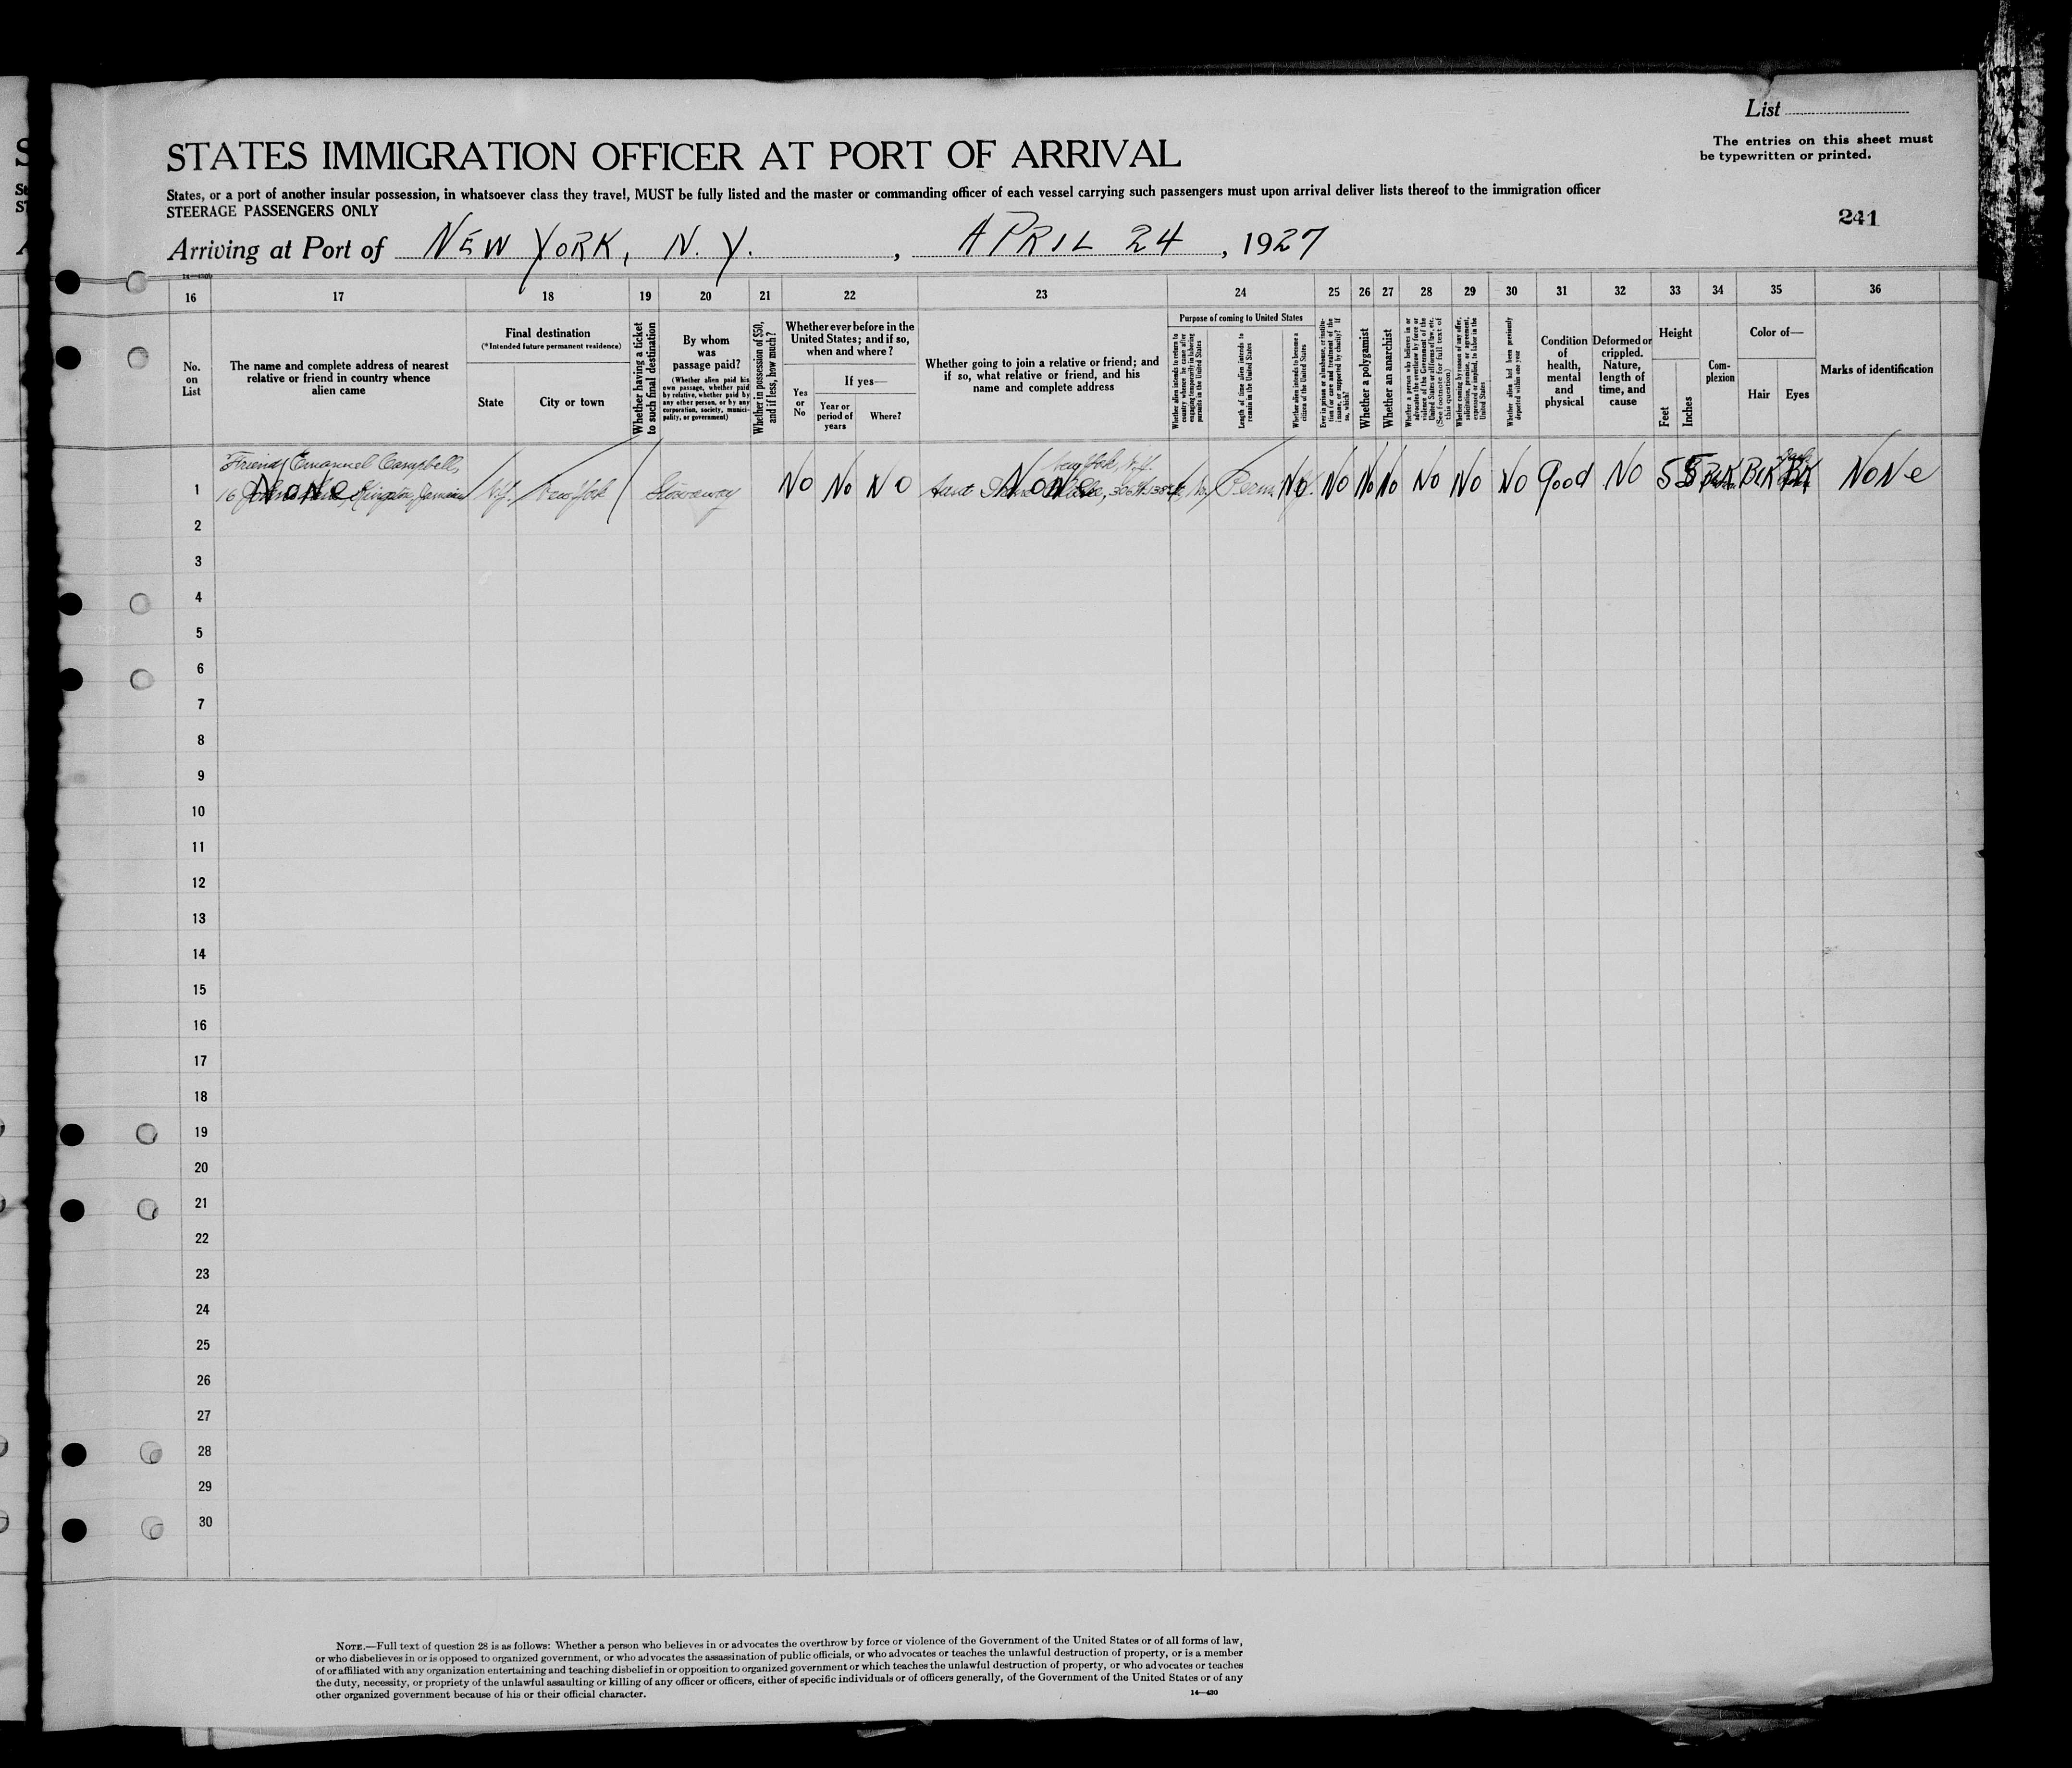 List
The entries on this sheet must
be typewritten or printed.
STATES IMMIGRATION OFFICER AT PORT OF ARRIVAL
States, or a port of another insular possession, in whatsoever class they travel, MUST be fully listed and the master or commanding officer of each vessel carrying such passengers must upon arrival deliver lists thereof to the immigration officer
STEERAGE PASSENGERS ONLY
241
Arriving at Port of NEW YORK, N. Y. , APRIL 24 , 1927
16 17 18 19 20 21 22 23 24 25 26 27 28 29 30 31 32 33 34 35 36
No.
on
List
The name and complete address of nearest
relative or friend in country whence
alien came
Final destination
(*Intended future permanent residence)
State
City or town
Whether having a ticket
to such final destination
By whom
was
passage paid?
(Whether alien paid his
own passage, whether paid
by relative, whether paid by
any other person, or by any
corporation, society, munici-
pality, or government)
Whether in possession of $50,
and if less, how much?
Whether ever before in the
United States; and if so,
when and where?
Yes
or
No
If yes—
Year or
period of
years
Where?
Whether going to join a relative or friend; and
if so, what relative or friend, and his
name and complete address
Purpose of coming to United States
Whether alien intends to return to
country whence he came after
engaging temporarily in laboring
pursuits in the United States
Length of time alien intends to
remain in the United States
Whether alien intends to become a
citizen of the United States
Ever in prison or almshouse, or institu-
tion for care and treatment of the
insane, or supported by charity? If
so, which?
Whether a polygamist
Whether an anarchist
Whether a person who believes in or
advocates the overthrow by force or
violence of the Government of the
United States or all forms of law, etc.
(See footnote for full text of
this question)
Whether coming by reason of any offer,
solicitation, promise, or agreement,
expressed or implied, to labor in the
United States
Whether alien had been previously
deported within one year
Condition
of
health,
mental
and
physical
Deformed or
crippled.
Nature,
length of
time, and
cause
Height
Feet
Inches
Com-
plexion
Color of—
Hair
Eyes
Marks of identification
Friend Emanuel Campbell, New York, N.Y.
1 16 None Kingston, Jamaica N.Y. New York Stowaway No No No Aunt None 306 W. 138 Perm. No No No No No No No Good No 5 5 Blk Blk None
2
3
4
5
6
7
8
9
10
11
12
13
14
15
16
17
18
19
20
21
22
23
24
25
26
27
28
29
30
NOTE.—Full text of question 28 is as follows: Whether a person who believes in or advocates the overthrow by force or violence of the Government of the United States or of all forms of law,
or who disbelieves in or is opposed to organized government, or who advocates the assassination of public officials, or who advocates or teaches the unlawful destruction of property, or is a member
of or affiliated with any organization entertaining and teaching disbelief in or opposition to organized government or which teaches the unlawful destruction of property, or who advocates or teaches
the duty, necessity, or propriety of the unlawful assaulting or killing of any officer or officers, either of specific individuals or of officers generally, of the Government of the United States or of any
other organized government because of his or their official character.
14—430